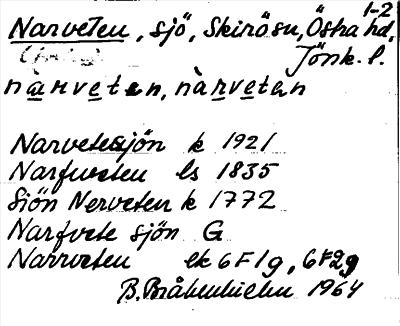 1-2
Narveten, sjö, Skirö sn, Östra hd,
Jönk. l.
narvetən, nàrvetən
Narvetesjön k 1921
Narfweten ls 1835
Siön Nerveten k 1772
Narfvete sjön G
Narrveten ek 6F1g, 6F2g
1964